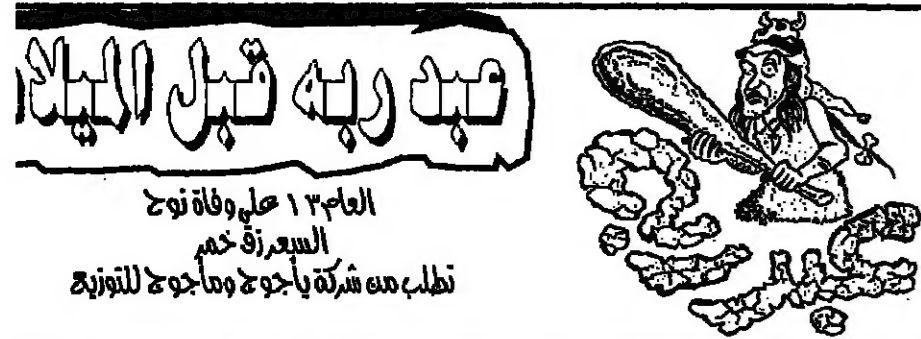 عبد ربه قبل الميلا
العام ١٣ على وفاة نوح
السعر زق خمر
تطلب من شركة يأجوج ومأجوج للتوزيع